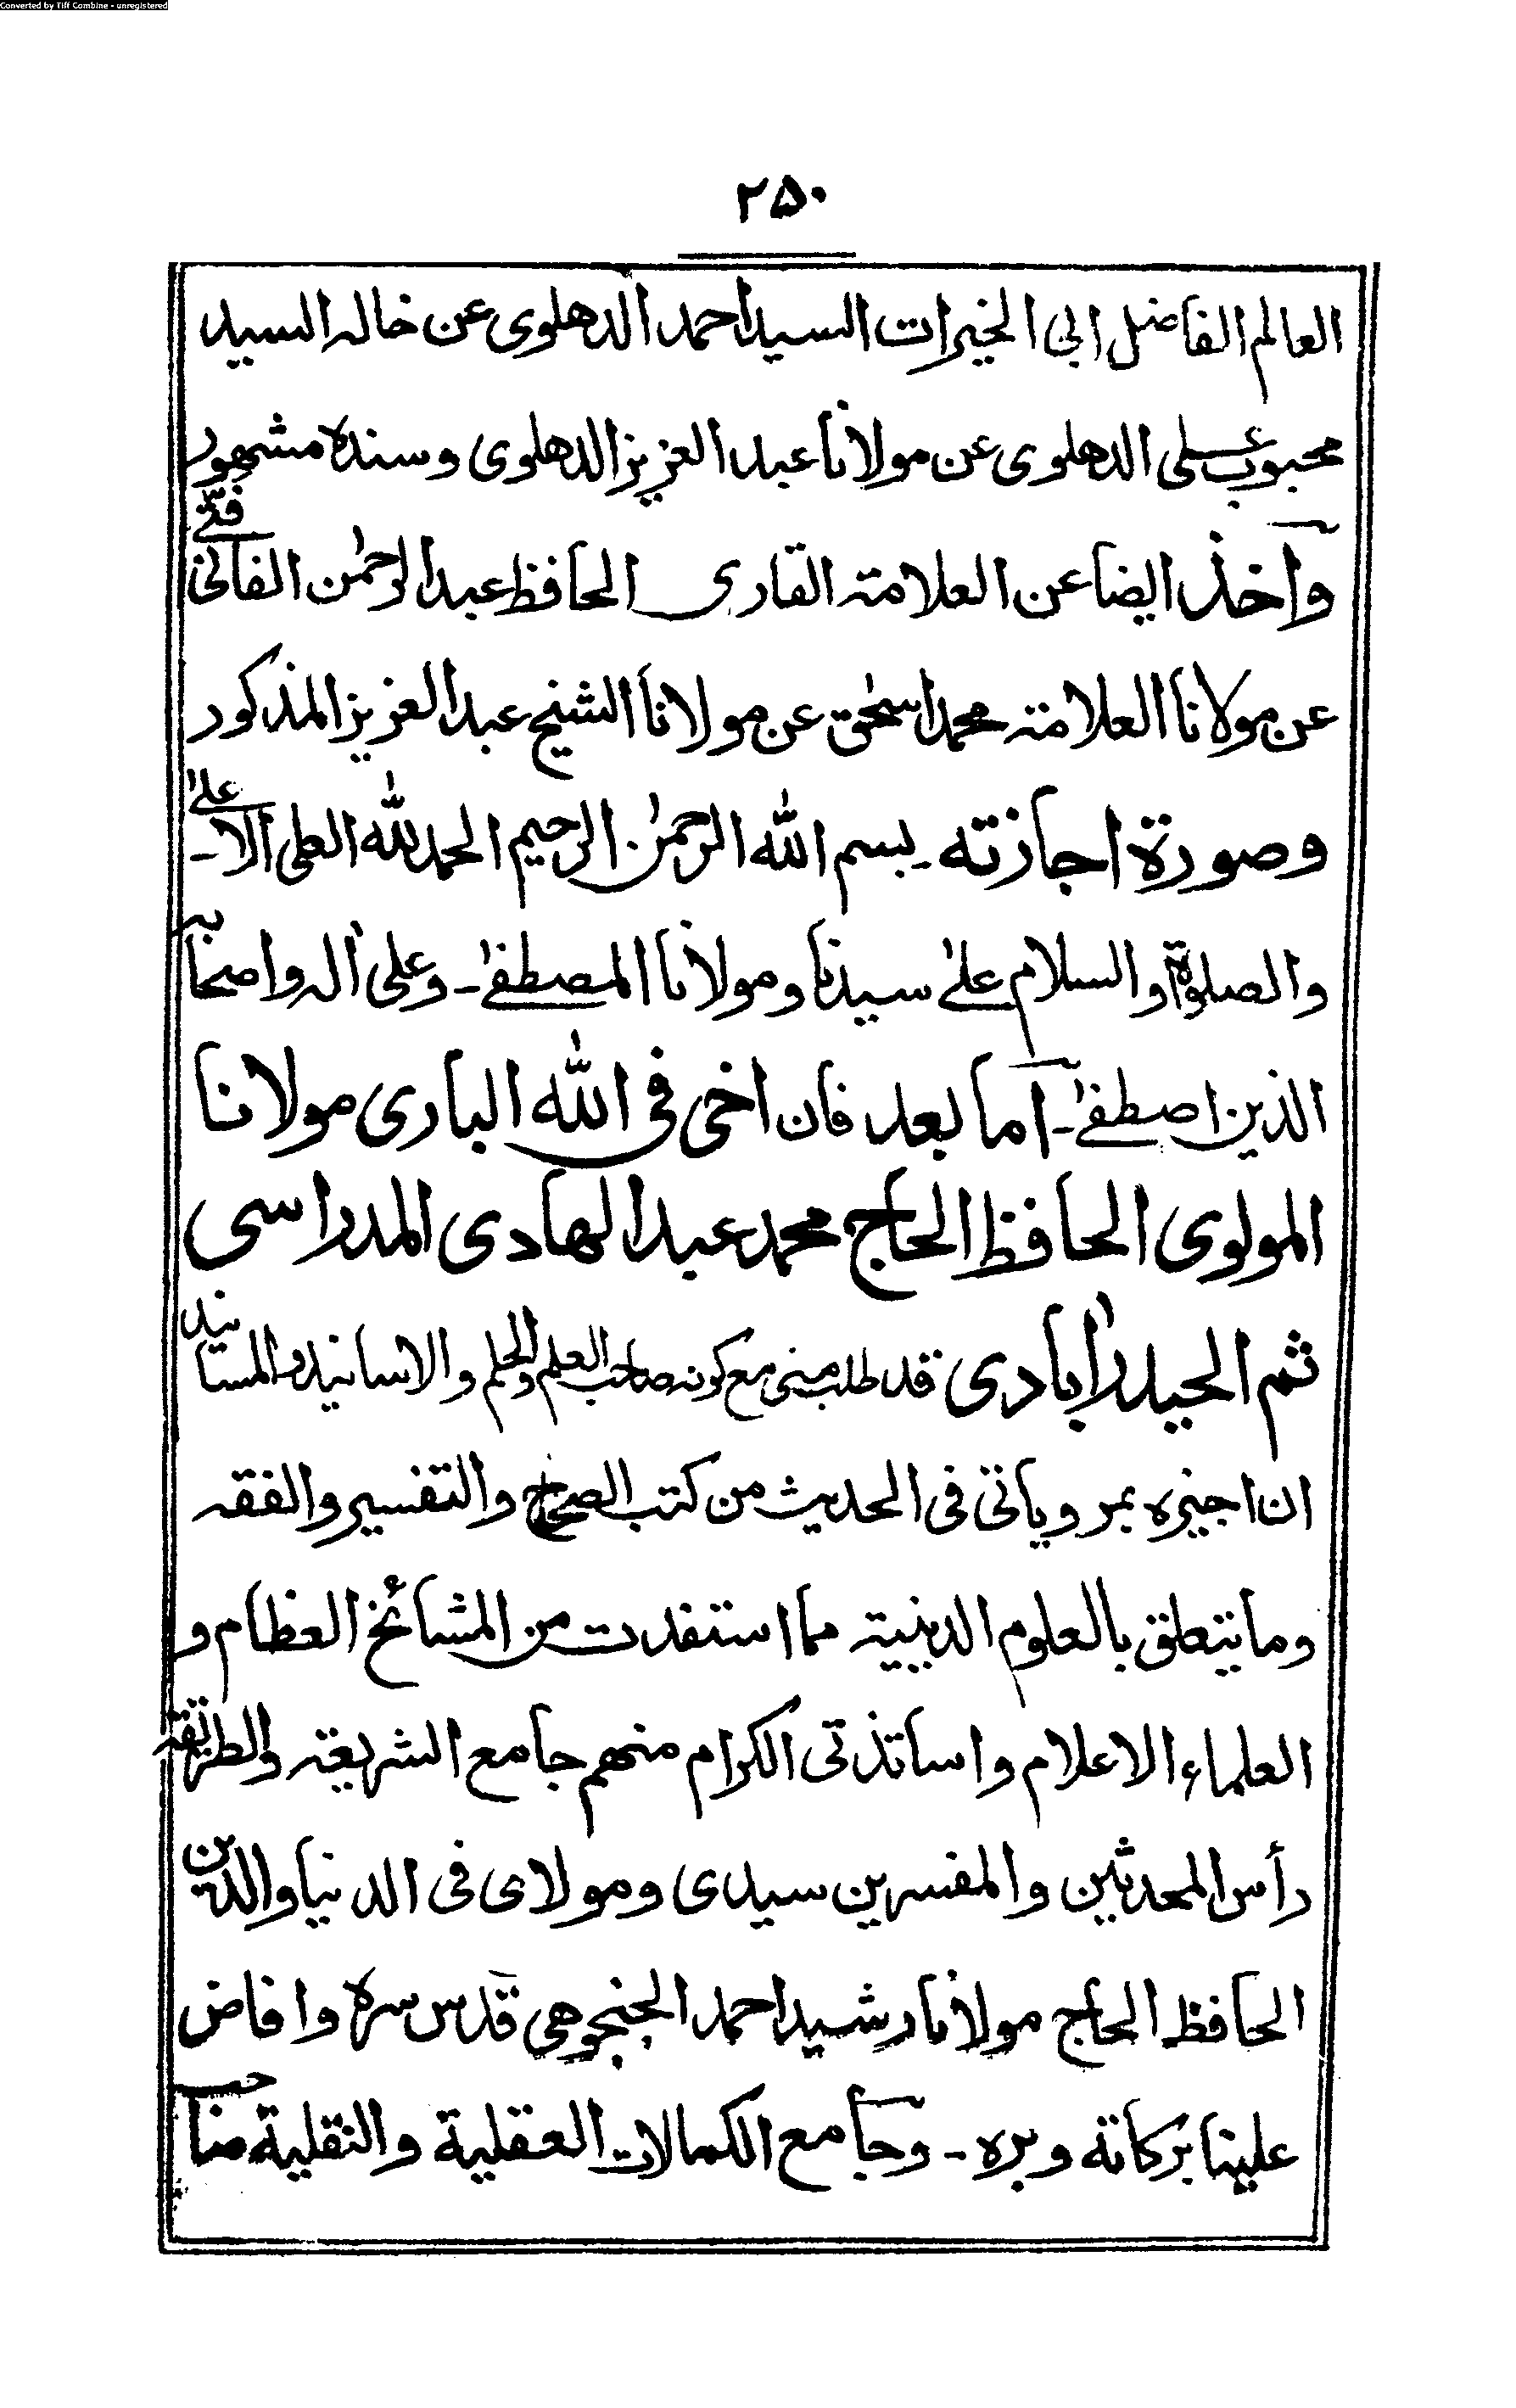 Converted by Tiff Combine - unregistered
۲۵۰
العالم الفاضل ابی الخیرات السید احمد الدهلوی عن خاله السید
محبوب علی الدهلوی عن مولانا عبد العزیز الدهلوی وسنده مشهور
وآخذ ایضا عن العلامة القاری الحافظ عبد الرحمٰن الفانی فتی
عن مولانا العلامة محمد اسحٰق عن مولانا الشیخ عبد العزیز المذکور
وصورة اجازته۔ بسم الله الرحمٰن الرحیم الحمد لله العلی الاعلیٰ۔
والصلوٰة والسلام علیٰ سیدنا ومولانا المصطفیٰ۔ وعلی اٰله واصحابه
الذین اصطفیٰ۔ اما بعد فان اخی فی الله الباری مولانا
المولوی الحافظ الحاج محمد عبد الهادی المدراسی
ثم الحیدراٰبادی قد طلب منی مع کونه صاحب العلم والحلم والاسانید والمسانید
ان اجیزه بمرویاتی فی الحدیث من کتب الصحاح والتفسیر والفقه
وما یتعلق بالعلوم الدینیة مما استفدت من المشائخ العظام و
العلماء الاعلام واساتذتی الکرام منهم جامع الشریعة والطریقة
رأس المحدثین والمفسرین سیدی ومولای فی الدنیا والدین
الحافظ الحاج مولانا رشید احمد الجنجوهی قدس سره وافاض
علینا برکاته وبره۔ وجامع الکمالات العقلیة والنقلیة صاحب